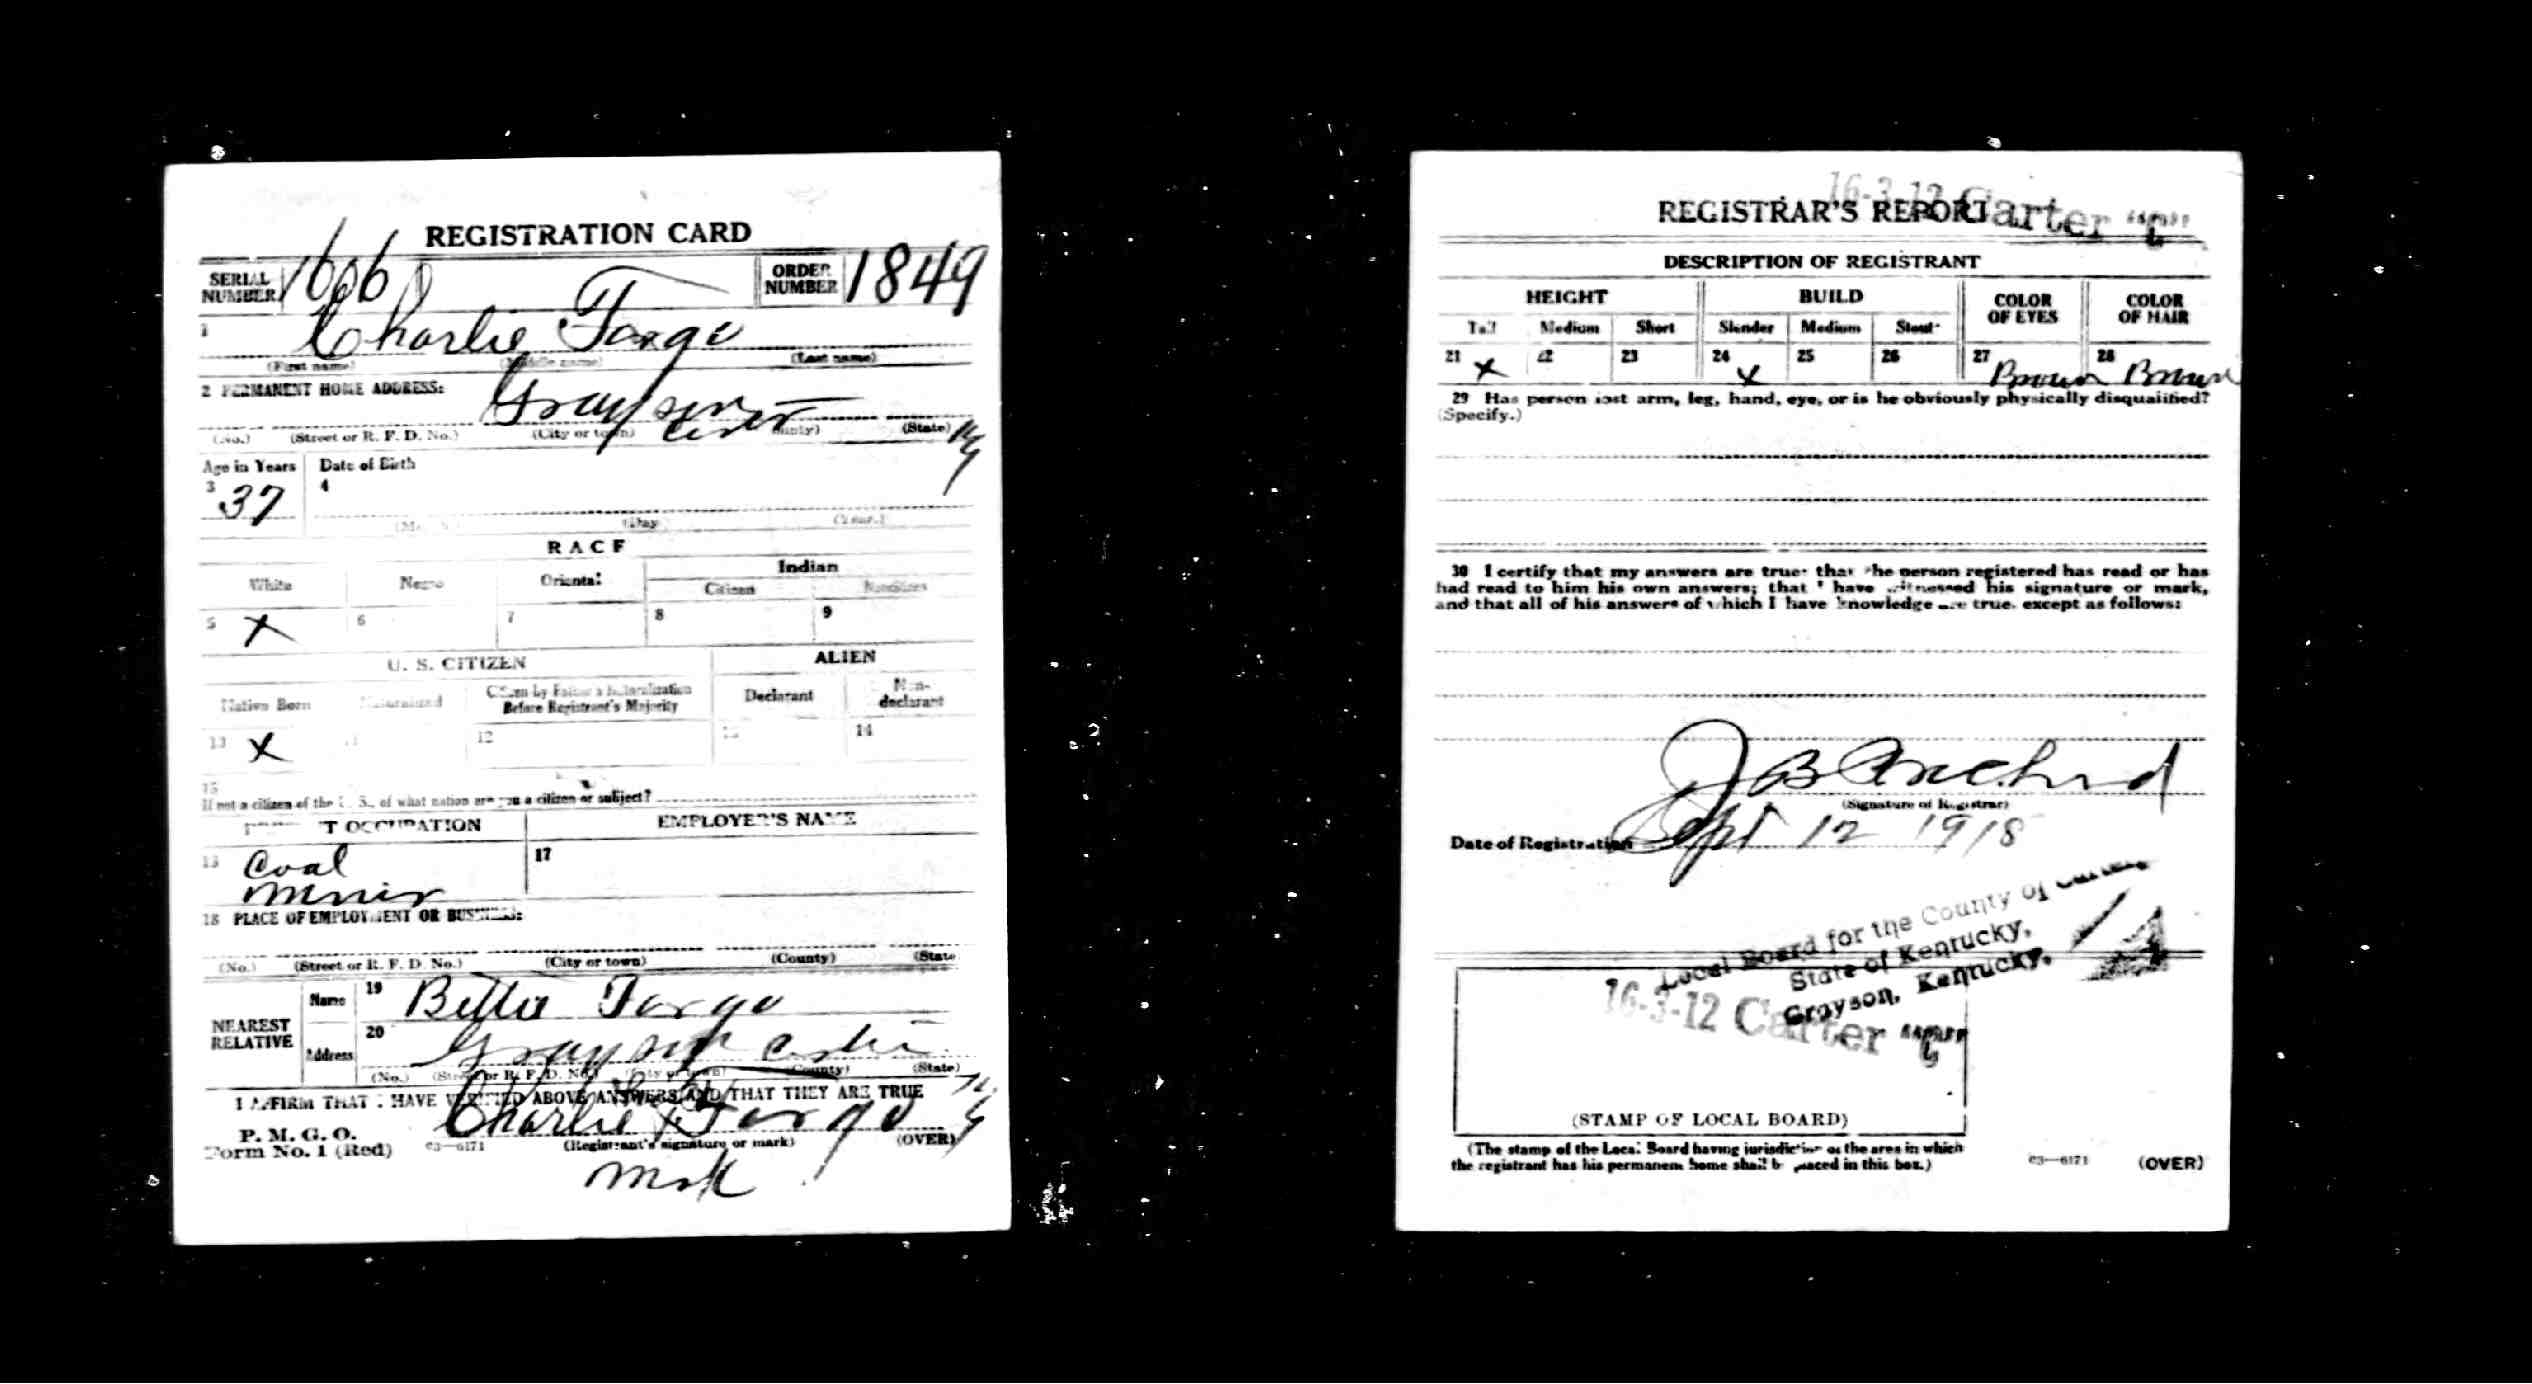 REGISTRATION CARD
SERIAL NUMBER 1606 ORDER NUMBER 1849
1 Charlie Fargo
(First name) (Middle name) (Last name)
2 PERMANENT HOME ADDRESS:
Grayson Carter Ky
(No.) (Street or R. F. D. No.) (City or town) (County) (State)
Age in Years Date of Birth
3 37 4
(Month) (Day) (Year.)
RACE
White Negro Oriental Indian
Citizen Noncitizen
5 X 6 7 8 9
U. S. CITIZEN ALIEN
Native Born Naturalized Citizen by Father's Naturalization Before Registrant's Majority Declarant Non-declarant
10 X 11 12 13 14
15
If not a citizen of the U. S., of what nation are you a citizen or subject?
PRESENT OCCUPATION EMPLOYER'S NAME
16 Coal 17
Minir
18 PLACE OF EMPLOYMENT OR BUSINESS:
(No.) (Street or R. F. D. No.) (City or town) (County) (State
NEAREST RELATIVE Name 19 Bettie Fargo
Address 20 Grayson Carter Ky
(No.) (Street or R. F. D. No.) (City or town) (County) (State)
I AFFIRM THAT I HAVE VERIFIED ABOVE ANSWERS AND THAT THEY ARE TRUE
P. M. G. O.
Form No. 1 (Red) 03—6171 Charlie X Fargo
(Registrant's signature or mark) (OVER)
mark
16-3-12 Carter
REGISTRAR'S REPORT
DESCRIPTION OF REGISTRANT
HEIGHT BUILD COLOR OF EYES COLOR OF HAIR
Tall Medium Short Slender Medium Stout
21 X 22 23 24 X 25 26 27 Brown 28 Brown
29 Has person lost arm, leg, hand, eye, or is he obviously physically disqualified?
(Specify.)
30 I certify that my answers are true; that the person registered has read or has
had read to him his own answers; that I have witnessed his signature or mark,
and that all of his answers of which I have knowledge are true, except as follows:
(Signature of Registrar)
Date of Registration Sept 12 1918
Local Board for the County of Carter
State of Kentucky,
Grayson, Kentucky.
16-3-12 Carter
(STAMP OF LOCAL BOARD)
(The stamp of the Local Board having jurisdiction of the area in which
the registrant has his permanent home shall be placed in this box.)
03—6171 (OVER)